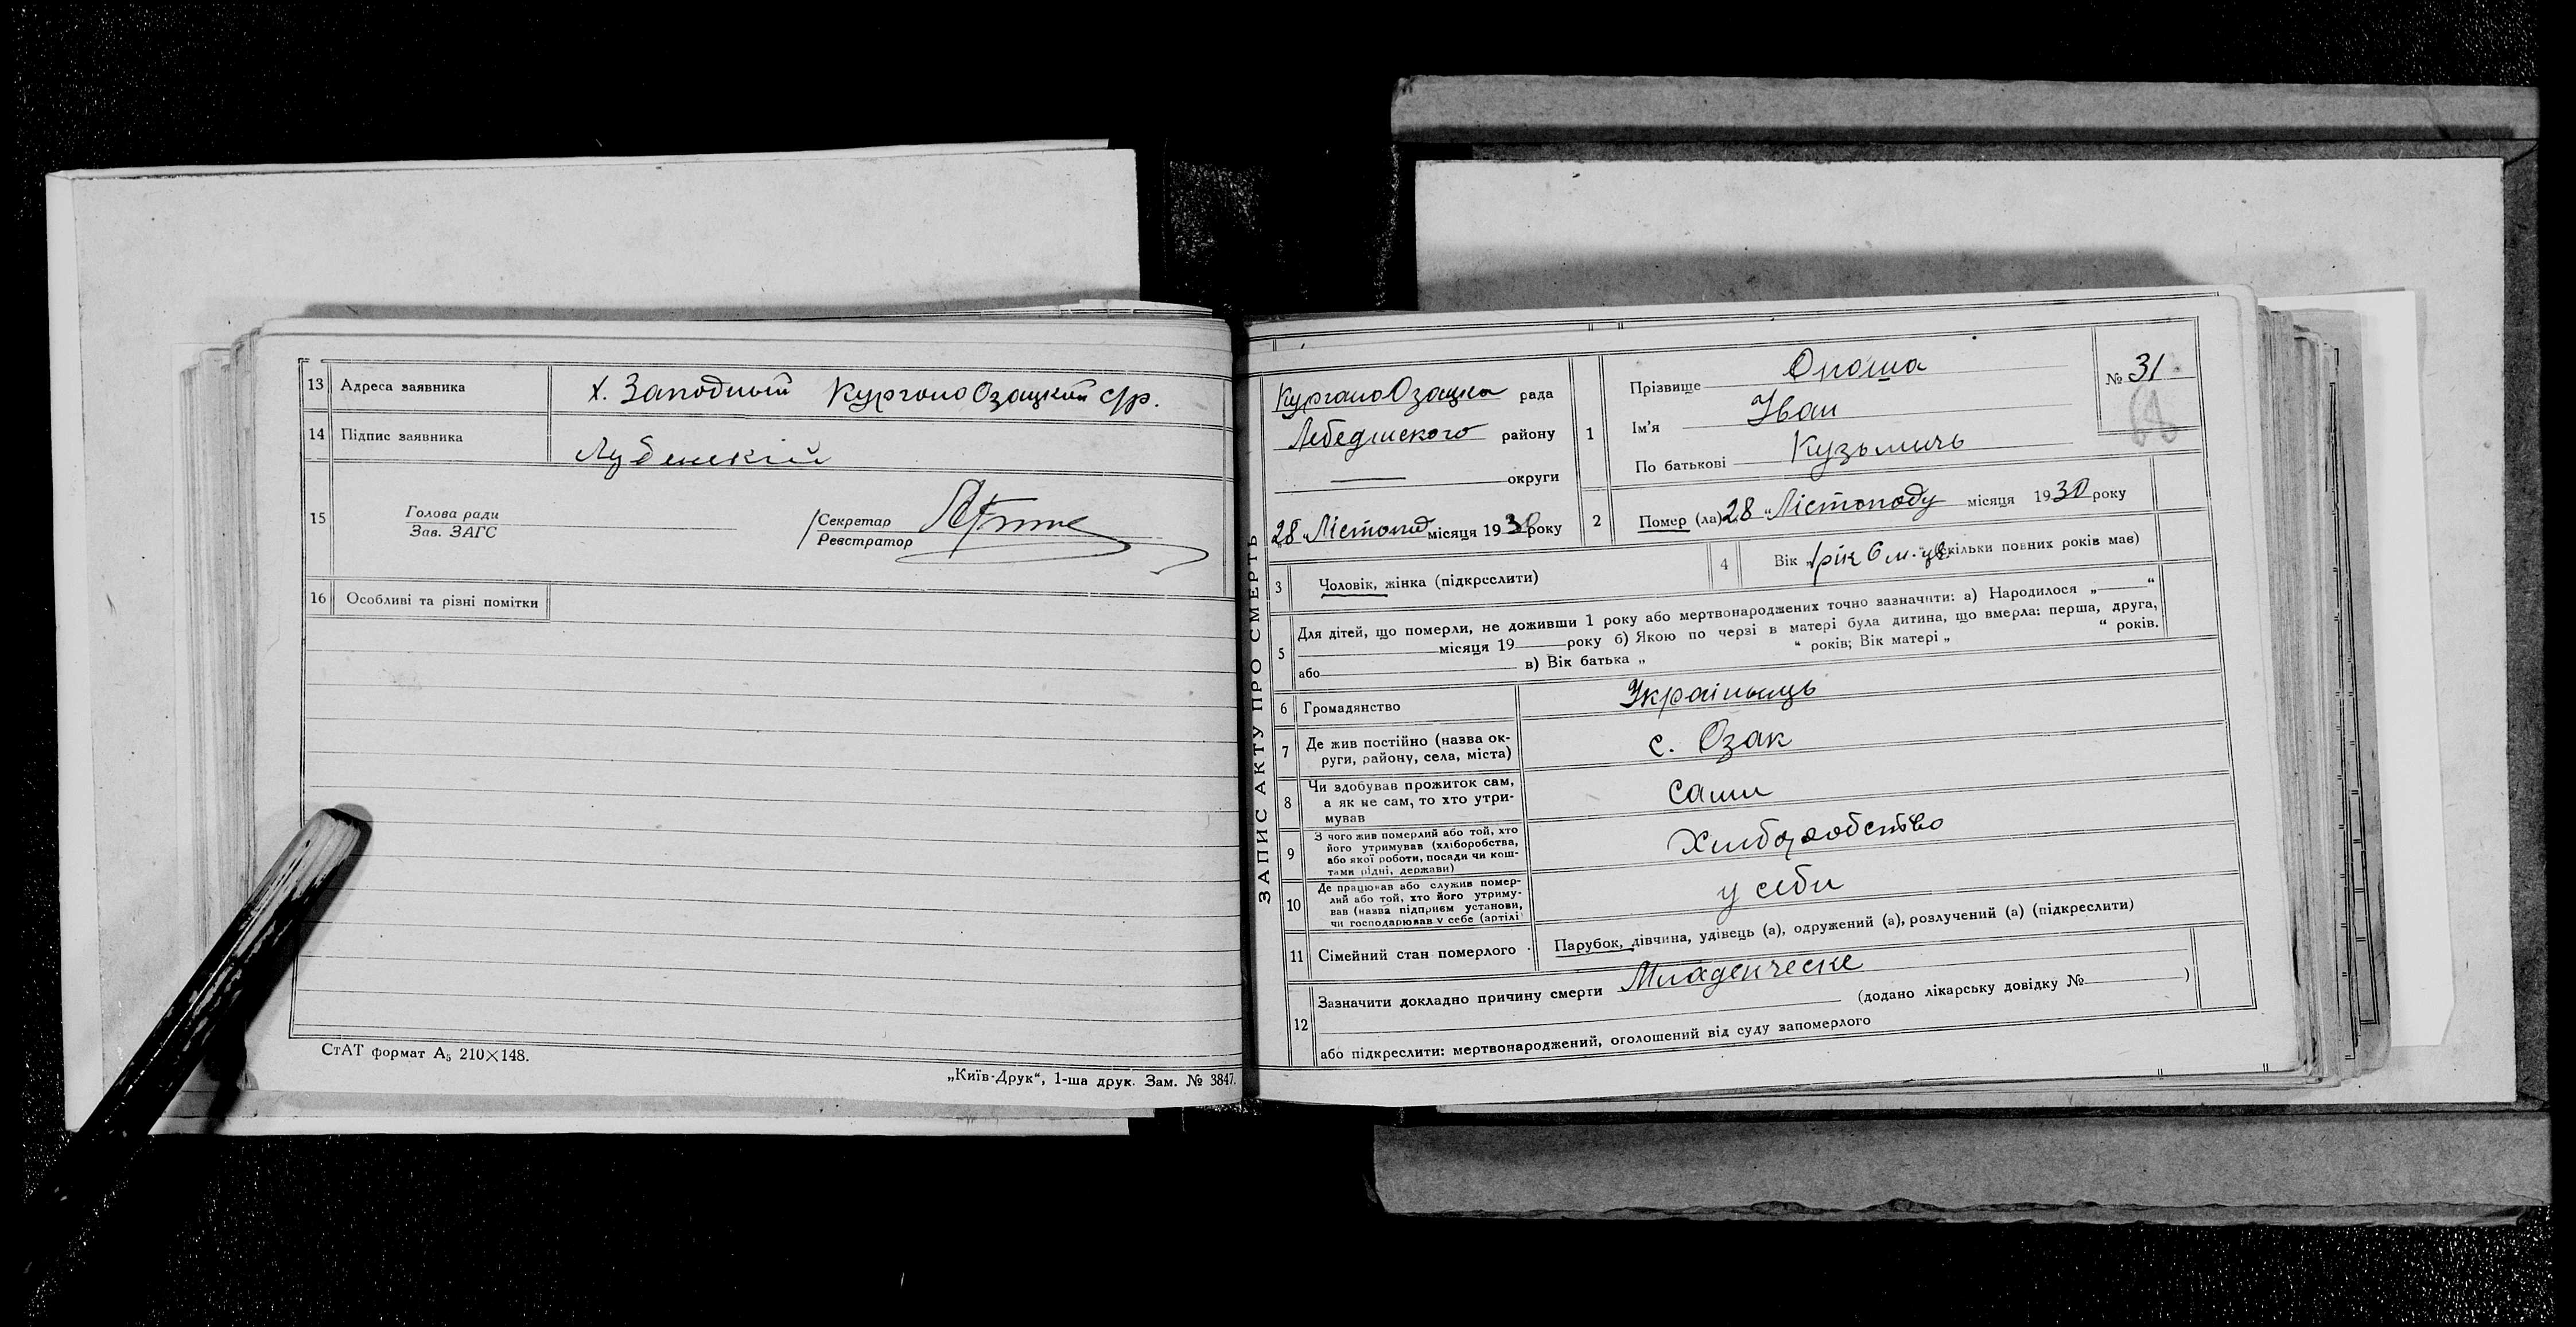 13 Адреса заявника х. Западный КурганоОзацкой с/р.
14 Підпис заявника Лубенскій
15 Голова ради
Зав. ЗАГС
Секретар
Реєстратор
16 Особливі та різні помітки
СтАТ формат А5 210×148.
„Київ-Друк“, 1-ша друк. Зам. № 3847.
ЗАПИС АКТУ ПРО СМЕРТЬ
КурганоОзацка рада
Лебединского району
— округи
„28 Лістопад місяця 1930 року
1
Прізвище Опоша
Ім'я Іван
По батькові Кузьмичь
№ 31
68
2 Помер (ла) „28“ Лістопаду місяця 1930 року
3 Чоловік, жінка (підкреслити)
4 Вік „1 рік 6 м. (скільки повних років має)
5 Для дітей, що померли, не доживши 1 року або мертвонароджених точно зазначити: а) Народилося „ “
місяця 19 року б) Якою по черзі в матері була дитина, що вмерла: перша, друга,
або в) Вік батька „ “ років; Вік матері „ “ років.
6 Громадянство Українець
7 Де жив постійно (назва ок-
руги, району, села, міста) с. Озак
8 Чи здобував прожиток сам,
а як не сам, то хто утри-
мував сами
9 З чого жив померлий або той, хто
його утримував (хліборобства,
або якої роботи, посади чи кош-
тами рідні, держави) Хлиборобство
10 Де працював або служив помер-
лий або той, хто його утриму-
вав (назва підприєм установи,
чи господарював у себе (артілі у себи
11 Сімейний стан померлого Парубок, дівчина, удівець (а), одружений (а), розлучений (а) (підкреслити)
12 Зазначити докладно причину смерти Младенческе
(додано лікарську довідку № )
або підкреслити: мертвонароджений, оголошений від суду запомерлого